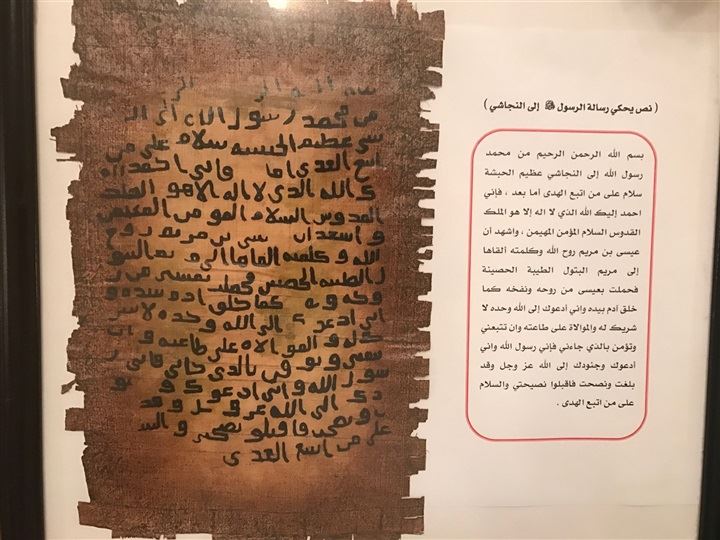 ( نص يحكي رسالة الرسول ﷺ إلى النجاشي )
بسم الله الرحمن الرحيم من محمد
رسول الله إلى النجاشي عظيم الحبشة
سلام على من اتبع الهدى أما بعد ، فإني
احمد إليك الله الذي لا اله إلا هو الملك
القدوس السلام المؤمن المهيمن ، واشهد أن
عيسى بن مريم روح الله وكلمته ألقاها
إلى مريم البتول الطيبة الحصينة
فحملت بعيسى من روحه ونفخه كما
خلق أدم بيده واني أدعوك إلى الله وحده لا
شريك له والموالاة على طاعته وان تتبعني
وتؤمن بالذي جاءني فإني رسول الله واني
أدعوك وجنودك إلى الله عز وجل وقد
بلغت ونصحت فاقبلوا نصيحتي والسلام
على من اتبع الهدى .
من محمد رسول الله الى
عظيم الحبسه سلام على من
اتبع الهدى اما فانى احمد
الله الذى لا اله الا هو الملك
القدوس السلام المومن المهيمن
و اسهد ان بن مريم روح
الله و كلمته القاها الى
الطيبه الحصينه فحملت بعيسى من
كما خلق ادم بيده و
انى ادعوك الى الله وحده لا
له و الموالاه على طاعته و ان
بالذى جانى فانى
سول الله و انى ادعوك و
دك الى الله عز و جل و قد
و نصحت فاقبلو نصيحتى و
على من اتبع الهدى